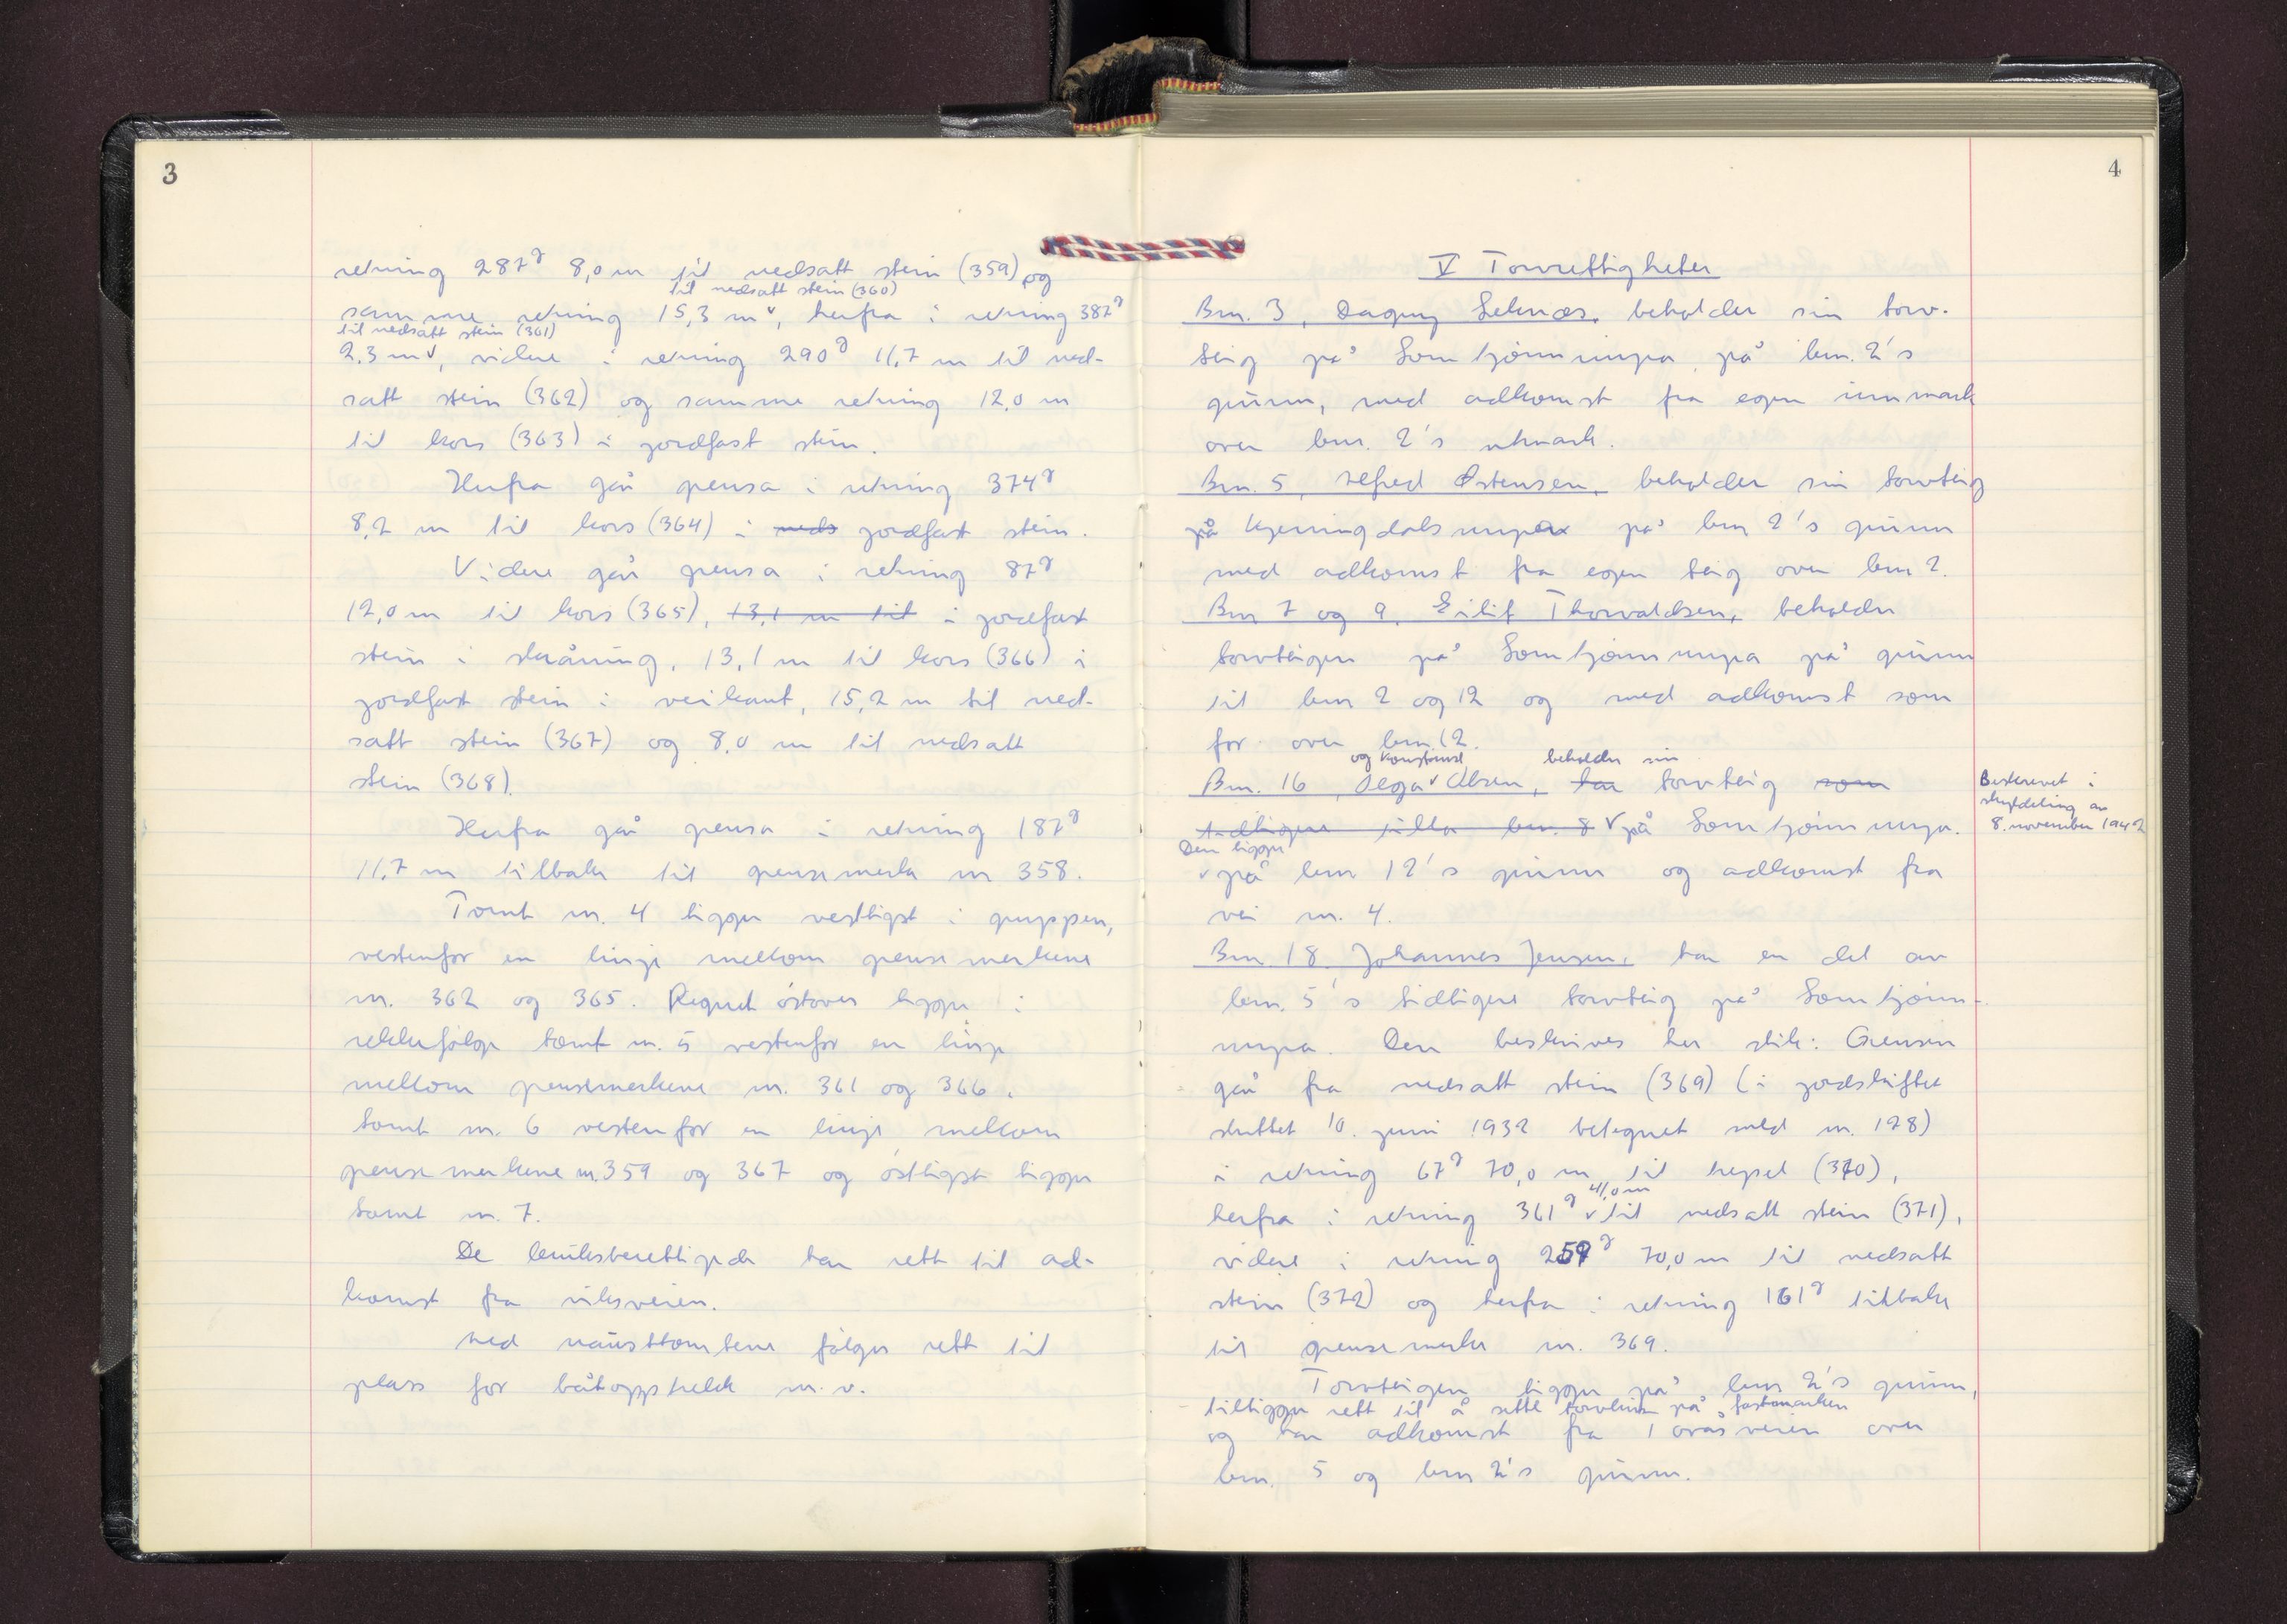 3
retning 287g 8,0 m til nedsatt stein (359) og
til nedsatt stein (360)
samme retning 15,3 m v, herfra i retning 387g
til nedsatt stein (361)
2,3 m v, videre i retning 290g 11,7 m til ned-
satt stein (362) og samme retning 12,0 m
til kors (363) i jordfast stein.
Herfra går grensa i retning 374g
8,2 m til kors (364) i neds jordfast stein.
Videre går grensa i retning 87g
12,0 m til kors (365), 13,1 m til i jordfast
stein i skråning, 13,1 m til kors (366) i
jordfast stein i veikant, 15,2 m til ned-
satt stein (367) og 8,0 m til nedsatt
stein (368).
Herfra går grensa i retning 187g
11,7 m tilbake til grensemerke nr 358.
Tomt nr. 4 ligger vestligst i gruppen,
vestenfor en linje mellom grensemerkene
nr. 362 og 365. Regnet østover ligger i
rekkefølge tomt nr. 5 vestenfor en linje
mellom grensemerkene nr. 361 og 366,
tomt nr. 6 vestenfor en linje mellom
grensemerkene nr. 359 og 367 og østligst ligger
tomt nr. 7.
De bruksberettigede har rett til ad-
komst fra viksveien.
Med nausttomtene følger rett til
plass for båtopptrekk m.v.
4
V Torvrettigheter
Bnr. 3, Dagny Seknes, beholder sin torv-
teig på Somtjønnmyra, på bnr. 2's
grunn, med adkomst fra egen innmark
over bnr. 2's utmark.
Bnr. 5, Alfred Østensen, beholder sin torvteig
på Kjerringdalsmyra på bnr 2's grunn
med adkomst fra egen teig over bnr 2.
Bnr 7 og 9, Eilif Thorvaldsen, beholder
torvteigen på Somtjønnmyra på grunn
til bnr 2 og 12 og med adkomst som
før over bnr. 12.
og Konstanse beholder sin
Bnr. 16, Olga v Olsen, har torvteig som
tidligere tilla bnr. 8 v på Somtjønnmyra.
Beskrevet i
utskifting av
8. november 1942
Den ligger
v på bnr 12's grunn og adkomst fra
vei nr. 4.
Bnr. 18, Johannes Jensen, har en del av
bnr. 5's tidligere torvteig på Somtjønn-
myra. Den beskrives her slik: Grensen
går fra nedsatt stein (369) (i jordskiftet
sluttet 10. juni 1932 betegnet med nr. 128)
i retning 67g 70,0 m til trepel (370),
41,0 m
herfra i retning 361g v til nedsatt stein (371),
videre i retning 259g 70,0 m til nedsatt
stein (372) og herfra i retning 161g tilbake
til grensemerke nr. 369.
Torvteigen ligger på bnr 2's grunn,
tilligger rett til å sette torvhus på fastmarken
og har adkomst fra Toråsveien over
bnr. 5 og bnr 2's grunn.